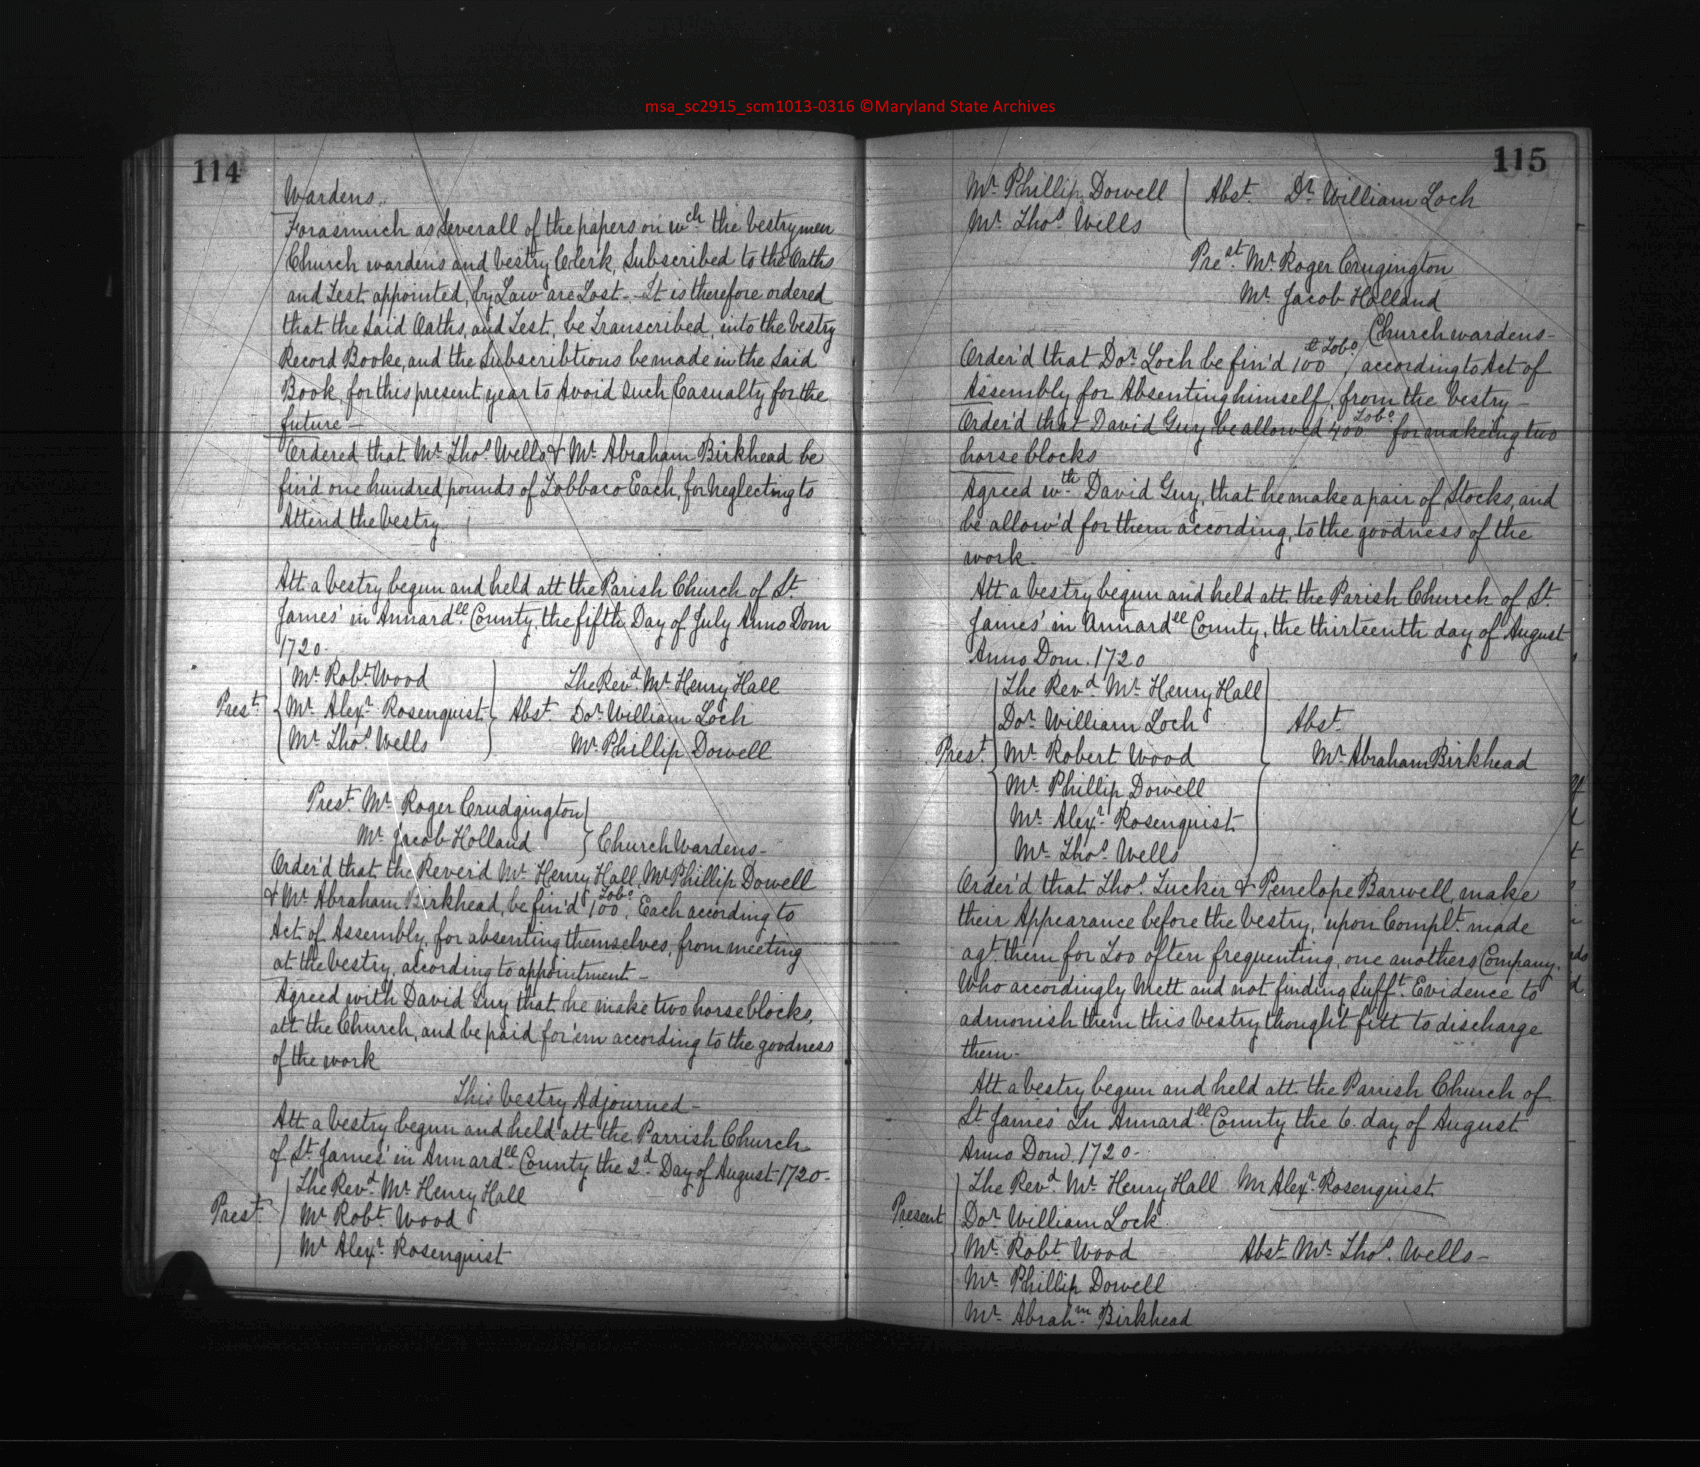 msa_sc2915_scm1013-0316 ©Maryland State Archives
114
Wardens.
Forasmuch as Severall of the papers on wch the Vestrymen
Church wardens and Vestry Clerk, Subscribed to the Oaths
and Test, appointed, by Law are Lost - It is therefore ordered
that the Said Oaths, and Test, be Transcribed, into the Vestry
Record Booke, and the Subscribtions be made in the Said
Book, for this present year to Avoid Such Casualty for the
future -
Ordered that Mr. Thos. Wells & Mr. Abraham Birkhead be
fin'd one hundred pounds of Tobbaco Each, for neglecting to
Attend the Vestry.
Att a Vestry begun and held att the Parish Church of St.
James' in Annardll. County, the fifth Day of July Anno Dom
1720.
Mr. Robt. Wood The Revd. Mr. Henry Hall
Prest. Mr. Alexr. Rosenquist Abst. Dor. William Loch
Mr. Thos. Wells Mr. Phillip Dowell
Prest. Mr. Roger Crudgington
Mr. Jacob Holland Church Wardens -
Order'd that the Rever'd Mr. Henry Hall, Mr Phillip Dowell
& Mr. Abraham Birkhead, be fin'd 100 Tobo. Each according to
Act of Assembly, for absenting themselves, from meeting
at the Vestry, according to appointment -
Agreed with David Guy, that he make two horse blocks,
att the Church, and be paid for 'em according to the goodness
of the work
This Vestry Adjourned -
Att a Vestry begun and held att the Parrish Church
of St. James' in Annardll. County the 2d. Day of August 1720 -
The Revd. Mr. Henry Hall
Prest. Mr. Robt. Wood
Mr. Alexr. Rosenquist
115
Mr. Phillip Dowell Abst. Dr. William Loch
Mr. Thos. Wells
Prest. Mr. Roger Crugington
Mr. Jacob Holland
Church wardens -
Order'd that Dor. Loch be fin'd 100 Tobo, according to Act of
Assembly, for Absenting himself, from the Vestry -
Order'd that David Guy be allowed 400 Tobo for makeing two
horse blocks
Agreed wth. David Guy, that he make a pair of Stocks, and
be allow'd for them according, to the goodness of the
work.
Att a Vestry begun and held att the Parish Church of St.
James' in Annardll County, the thirteenth day of August
Anno Dom. 1720
The Revd. Mr. Henry Hall
Dor. William Loch Abst.
Prest. Mr. Robert Wood Mr. Abraham Birkhead
Mr. Phillip Dowell
Mr. Alexr. Rosenquist
Mr. Thos. Wells
Order'd that Thos. Tucker & Penelope Barwell, make
their Appearance before the Vestry, upon Complt. made
agt. them for Too often frequenting, one anothers Company.
Who accordingly Mett and not finding Sufft. Evidence to
admonish them this Vestry thought fitt to discharge
them -
Att a Vestry begun and held att the Parrish Church of
St James' In Annardll. County the 6. day of August
Anno Dom. 1720 -
The Revd. Mr. Henry Hall Mr Alexr. Rosenquist
Present Dor. William Lock
Mr. Robt Wood Abst Mr. Thos. Wells -
Mr. Phillip Dowell
Mr. Abrahm. Birkhead